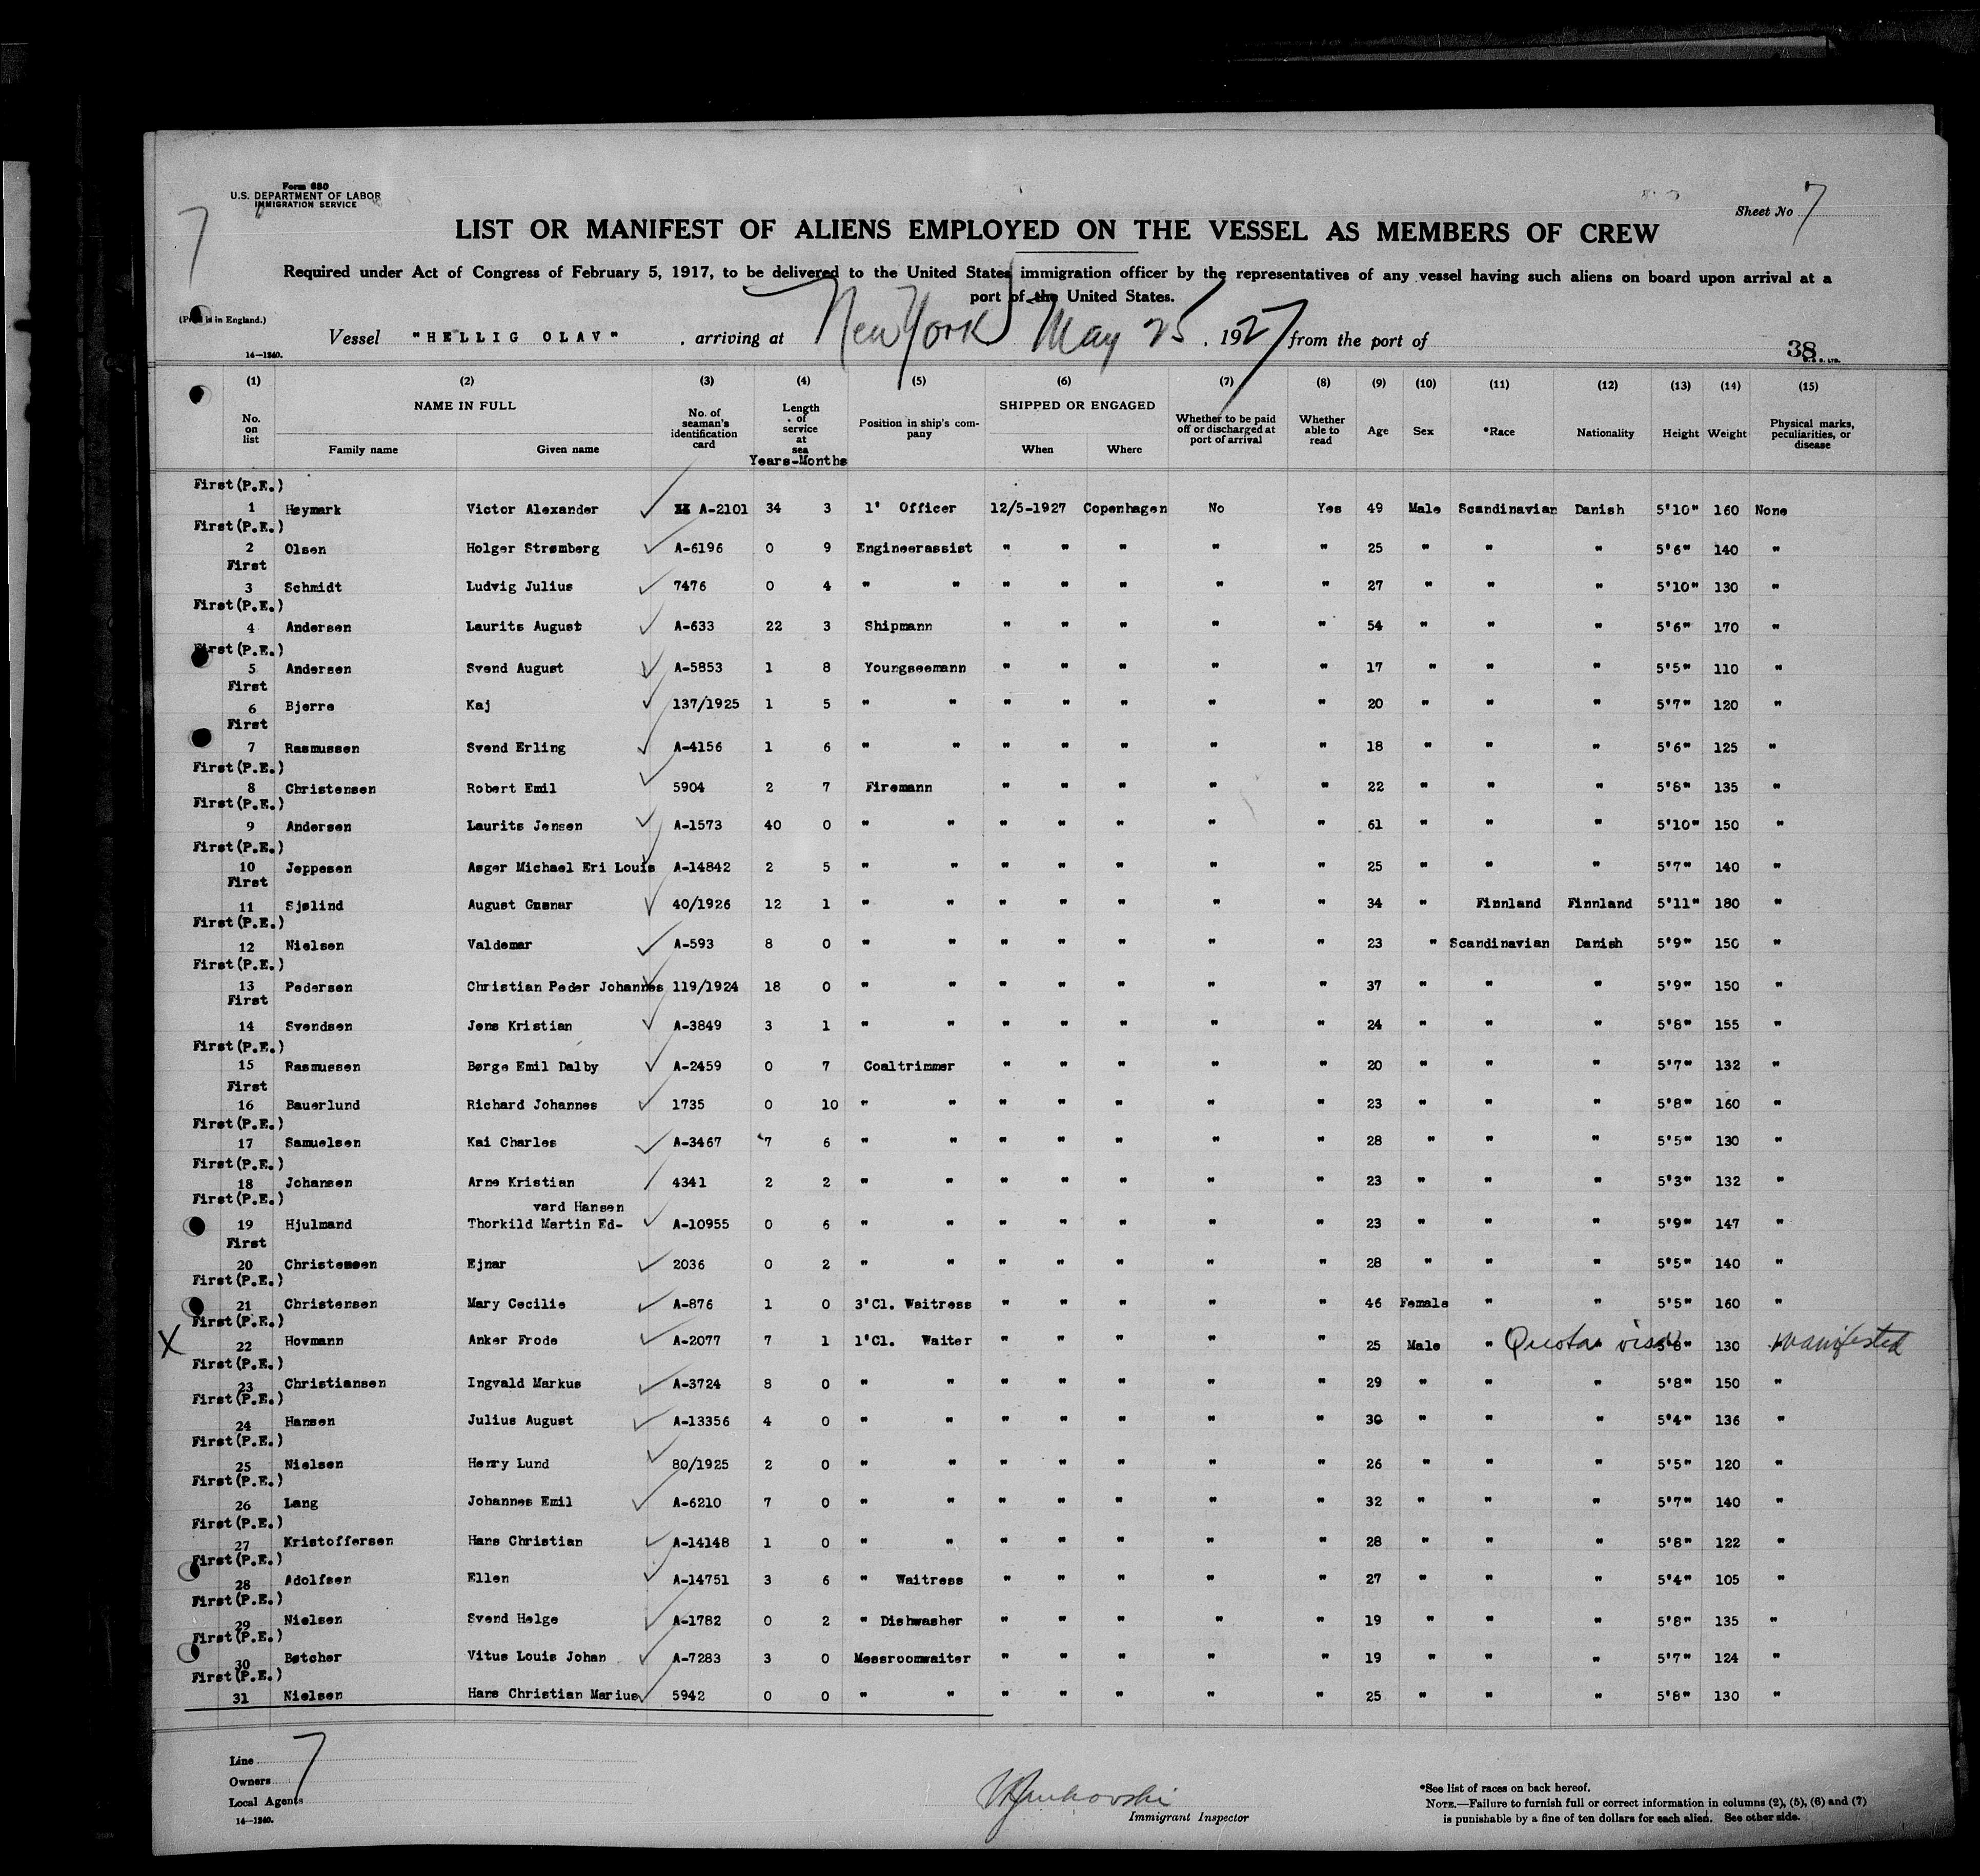 Form 680
U.S. DEPARTMENT OF LABOR
IMMIGRATION SERVICE
7
Sheet No 7
LIST OR MANIFEST OF ALIENS EMPLOYED ON THE VESSEL AS MEMBERS OF CREW
Required under Act of Congress of February 5, 1917, to be delivered to the United States immigration officer by the representatives of any vessel having such aliens on board upon arrival at a
port of the United States.
is in England.)
Vessel "HELLIG OLAV" , arriving at New York May 25 , 1927 from the port of
14—1240.
38
(1) (2) (3) (4) (5) (6) (7) (8) (9) (10) (11) (12) (13) (14) (15)
No. on list NAME IN FULL Family name Given name No. of seaman's identification card Length of service at sea Years-Months Position in ship's company SHIPPED OR ENGAGED When Where Whether to be paid off or discharged at port of arrival Whether able to read Age Sex *Race Nationality Height Weight Physical marks, peculiarities, or disease
First(P.E.)
1 Heymark Victor Alexander A-2101 34 3 1' Officer 12/5-1927 Copenhagen No Yes 49 Male Scandinavian Danish 5'10" 160 None
First(P.E.)
2 Olsen Holger Strømberg A-6196 0 9 Engineerassist " " " " " 25 " " " 5'6" 140 "
First
3 Schmidt Ludvig Julius 7476 0 4 " " " " " " " 27 " " " 5'10" 130 "
First(P.E.)
4 Andersen Laurits August A-633 22 3 Shipmann " " " " " 54 " " " 5'6" 170 "
First(P.E.)
5 Andersen Svend August A-5853 1 8 Youngseemann " " " " " 17 " " " 5'5" 110 "
First
6 Bjerre Kaj 137/1925 1 5 " " " " " " " 20 " " " 5'7" 120 "
First
7 Rasmussen Svend Erling A-4156 1 6 " " " " " " " 18 " " " 5'6" 125 "
First(P.E.)
8 Christensen Robert Emil 5904 2 7 Firemann " " " " " 22 " " " 5'8" 135 "
First(P.E.)
9 Andersen Laurits Jensen A-1573 40 0 " " " " " " " 61 " " " 5'10" 150 "
First(P.E.)
10 Jeppesen Asger Michael Eri Louis A-14842 2 5 " " " " " " " 25 " " " 5'7" 140 "
First
11 Sjølind August 40/1926 12 1 " " " " " " " 34 " Finnland Finnland 5'11" 180 "
First(P.E.)
12 Nielsen Valdemar A-593 8 0 " " " " " " " 23 " Scandinavian Danish 5'9" 150 "
First(P.E.)
13 Pedersen Christian Peder Johannes 119/1924 18 0 " " " " " " " 37 " " " 5'9" 150 "
First
14 Svendsen Jens Kristian A-3849 3 1 " " " " " " " 24 " " " 5'8" 155 "
First(P.E.)
15 Rasmussen Børge Emil Dalby A-2459 0 7 Coaltrimmer " " " " " 20 " " " 5'7" 132 "
First
16 Bauerlund Richard Johannes 1735 0 10 " " " " " " " 23 " " " 5'8" 160 "
First(P.E.)
17 Samuelsen Kai Charles A-3467 7 6 " " " " " " " 28 " " " 5'5" 130 "
First(P.E.)
18 Johansen Arne Kristian 4341 2 2 " " " " " " " 23 " " " 5'3" 132 "
First(P.E.) vard Hansen
19 Hjulmand Thorkild Martin Ed- A-10955 0 6 " " " " " " " 23 " " " 5'9" 147 "
First
20 Christensen Ejnar 2036 0 2 " " " " " " " 28 " " " 5'5" 140 "
First(P.E.)
21 Christensen Mary Cecilie A-876 1 0 3'Cl. Waitress " " " " " 46 Female " " 5'5" 160 "
First(P.E.)
X 22 Hovmann Anker Frode A-2077 7 1 1'Cl. Waiter " " " " " 25 Male " Quota " visa 5'8" 130 " manifested
First(P.E.)
23 Christiansen Ingvald Markus A-3724 8 0 " " " " " " " 29 " " " 5'8" 150 "
First(P.E.)
24 Hansen Julius August A-13356 4 0 " " " " " " " 30 " " " 5'4" 136 "
First(P.E.)
25 Nielsen Henry Lund 80/1925 2 0 " " " " " " " 26 " " " 5'5" 120 "
First(P.E.)
26 Lang Johannes Emil A-6210 7 0 " " " " " " " 32 " " " 5'7" 140 "
First(P.E.)
27 Kristoffersen Hans Christian A-14148 1 0 " " " " " " " 28 " " " 5'8" 122 "
First(P.E.)
28 Adolfsen Ellen A-14751 3 6 " Waitress " " " " " 27 " " " 5'4" 105 "
First(P.E.)
29 Nielsen Svend Helge A-1782 0 2 " Dishwasher " " " " " 19 " " " 5'8" 135 "
First(P.E.)
30 Bøtcher Vitus Louis Johan A-7283 3 0 Messroomwaiter " " " " " 19 " " " 5'7" 124 "
First(P.E.)
31 Nielsen Hans Christian Marius 5942 0 0 " " " " " " " 25 " " " 5'8" 130 "
Line
7
Owners
Local Agents
14—1240.
Immigrant Inspector
*See list of races on back hereof.
NOTE.—Failure to furnish full or correct information in columns (2), (5), (6) and (7)
is punishable by a fine of ten dollars for each alien. See other side.